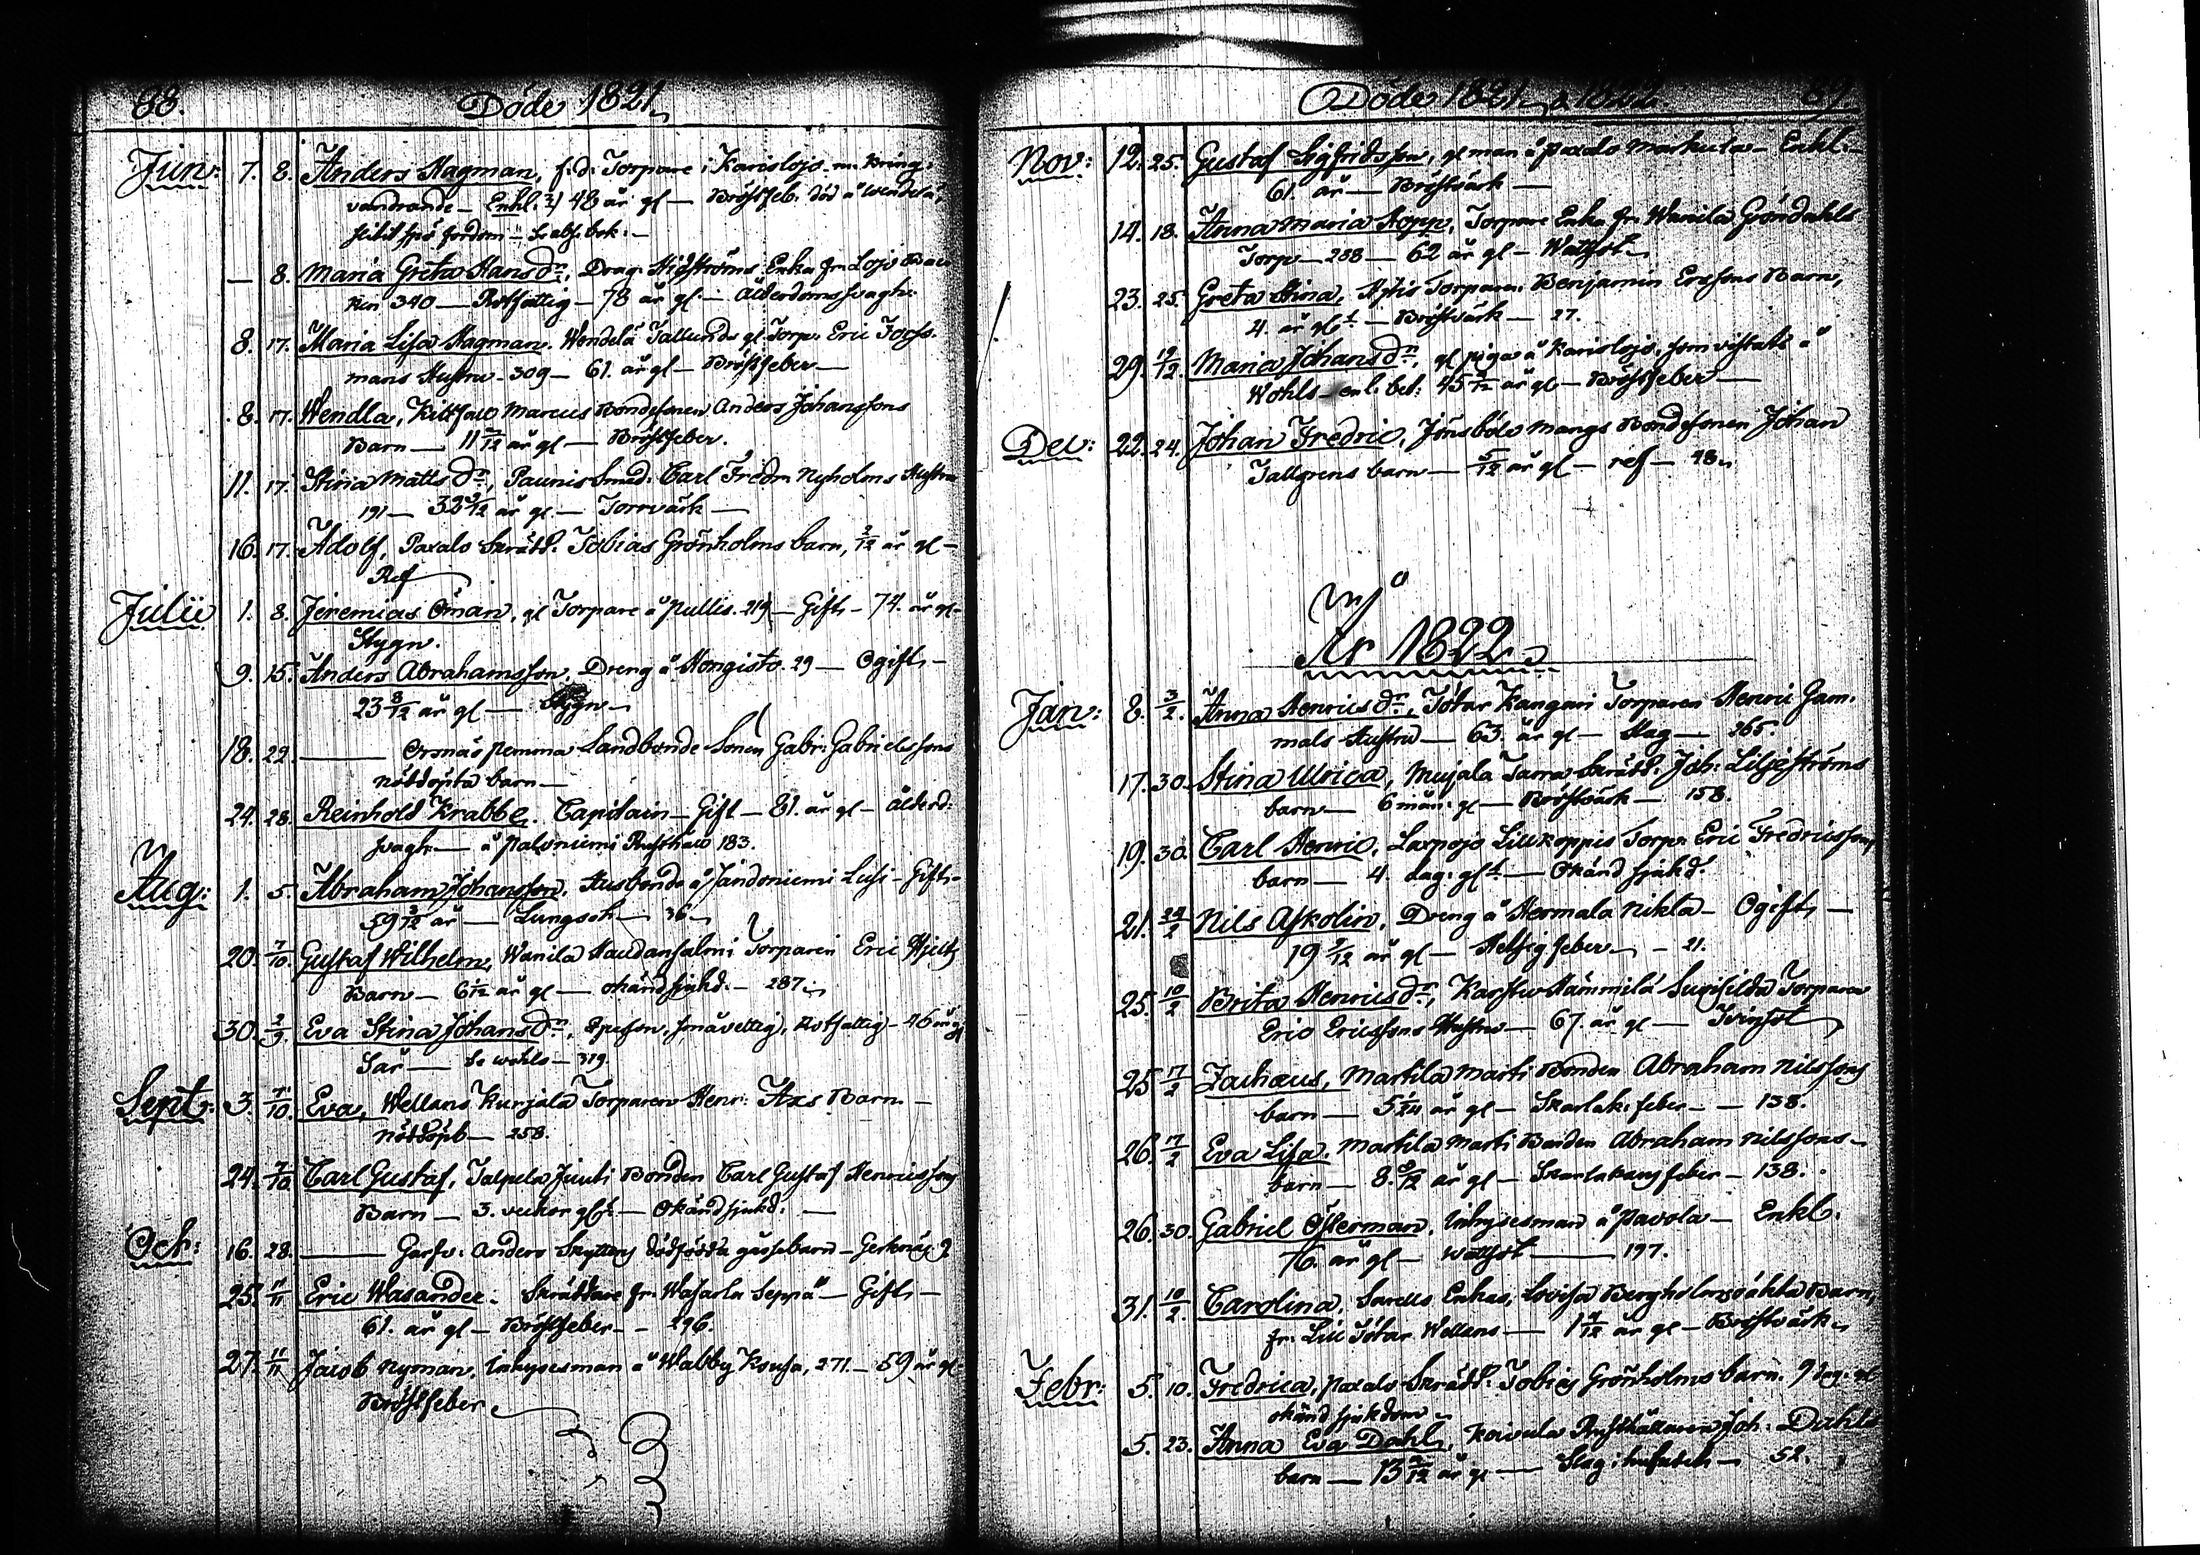 88. Döde 1821
Jun: 7. 8. Anders Hagman, f.d. Torpare i Karislojo m. kring-
vandrande – Enkl. 48 år gl – Bröstfeb. död å Wendelä,
fordom
– 8. Maria Greta Hans dr, Drag. Hidströms Enka fr. Lojo
340 – Rotfattig – 78 år gl. – Ålderdomssvagh:
8. 17. Maria Lisa Hagman. Wendelä Tallunds gl. Torp. Eric Forss-
mans Hustru – 309 – 61. år gl – Bröstfeber –
8. 17. Wendla, Kittfall Marcus Bondesonen Anders Johanssons
Barn – 11/12 år gl – Bröstfeber.
11. 17. Stina Matts dr, Paunis Smed. Carl Fredr. Nyholms Hustru
191 – 32 år gl – Torrvärk –
16. 17. Adolf, Paxalo Skrädd. Tobias Grönholms barn, 2/12 år gl –
Ref
Julii 1. 8. Jeremias Öman, gl Torpare å Pullis. 219 – Gift – 74. år gl –
Stygn.
9. 15. Anders Abrahamsson, Dreng å Hongisto. 29 – Ogift –
23 8/12 år gl – Stygn –
18. 22. – Ormnäs Pemma Landbonde Sonen Gabr: Gabrielssons
nöddöpta barn –
24. 28. Reinhold Krabbe. Capitain – Gift – 81. år gl – ålderd:
svagh. – å Paloniemi Rusthåll 183.
Aug: 1. 5. Abraham Johansson. Husbonde å Jandoniemi Lusi – Gift –
59 3/12 år – Lungsot – 36
20. 7/10. Gustaf Wilhelm, Wanila Haudansalmi Torparen Eric Hjerts
Barn – 6/12 år gl – okänd sjukd. – 287
30. 2/9. Eva Stina Johans dr, Ogift, Rotfattig – 46 år gl
Sår – 319.
Sept: 3. 7/10. Eva, Wellans Kunjala Torparen Henr: Axs Barn –
Nöddöpt – 258.
24. 7/10 Carl Gustaf, Talpela Juuti Bonden Carl Gustaf Henricssons
Barn – 3. veckor gl – Okänd sjukd. –
Oct: 16. 28. – Garfv: Anders Skyttens dödfödda gossebarn – Gerknäs
25. 11/11 Eric Wasander – Skräddare fr. Wasarla Seppä – Gift –
61. år gl – Bröstfeber – 296.
27. 11/11 Jacob Nyman, Inhysesman å Wabby Kousa, 271. – 59 år gl
Bröstfeber
Döde 1821 & 1822. 89.
Nov: 12. 25. Gustaf Sigfridsson, gl man å Paxalo Markula – Enkl. –
61. år – Bröstvärk –
14. 18. Anna Maria Hopp, Torpare Enka fr. Wanila Gröndahls
Torp – 288 – 62 år gl – Wattsot
23. 25. Greta Stina, Torparen Benjamin Ersons Barn,
4. år gl – Bröstvärk – 27.
29. 19/12 Maria Johans dr, gl piga å Karislojo, som vistats å
Wohls – 45 år gl – Bröstfeber –
Dec: 22. 24. Johan Fredric, Jönsböle Mangs Bondesonen Johan
Tallgrens barn – 5/12 år gl – ref – 48
År 1822
Jan: 8. 3/2. Anna Henrics dr, Tötar Kangari Torparen Henric Gam-
mals Hustru – 63. år gl – Slag – 265.
17. 30. Stina Ulrica, Mujala Tarra Skrädd. Joh: Liljeströms
barn – 6 mån. gl – Bröstvärk – 158.
19. 30. Carl Henric, Laxpojo Lillkoppis Torp. Eric Fredricssons
barn – 4. dag: gl – Okänd sjukd.
21. 24/2 Nils Askolin, Dreng å Hermala Nikla – Ogift –
19 år gl – Hetsig feber – 21.
25. 10/2 Brita Henrics dr, Karstu Hämmilä Torparen
Eric Ericssons Hustru – 67. år gl – Tvinsot
25 17/2 Zachæus, Martila Marti Bonden Abraham Nilssons
barn – 5 år gl – Skarlak. feber – 138.
26. 17/2 Eva Lisa, Martila Marti Bonden Abraham Nilssons –
barn – 8. år gl – Skarlakans feber – 138.
26. 30. Gabriel Österman, Inhysesman å Pavola – Enkl.
76. år gl – Wattsot – 197.
31. 10/2. Carolina, Sarells Enkas, Lovisa Bergholms oäkta Barn,
fr. Lill Tötar Wellans – 1 år gl – Bröstvärk
Febr: 5. 10. Fredrica, Paxalo Skrädd: Tobias Grönholms barn. 9 dag. gl
okänd sjukdom
5. 23. Anna Eva Dahl, Koivula Rusthållaren Joh: Dahls
barn – 13 år gl – Slag i hufvudet – 52.